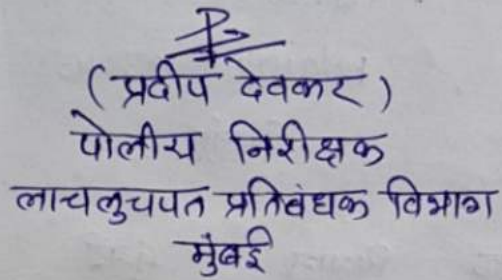 (प्रदीप देवकर)
पोलीस निरीक्षक
लाचलुचपत प्रतिबंधक विभाग
मुंबई